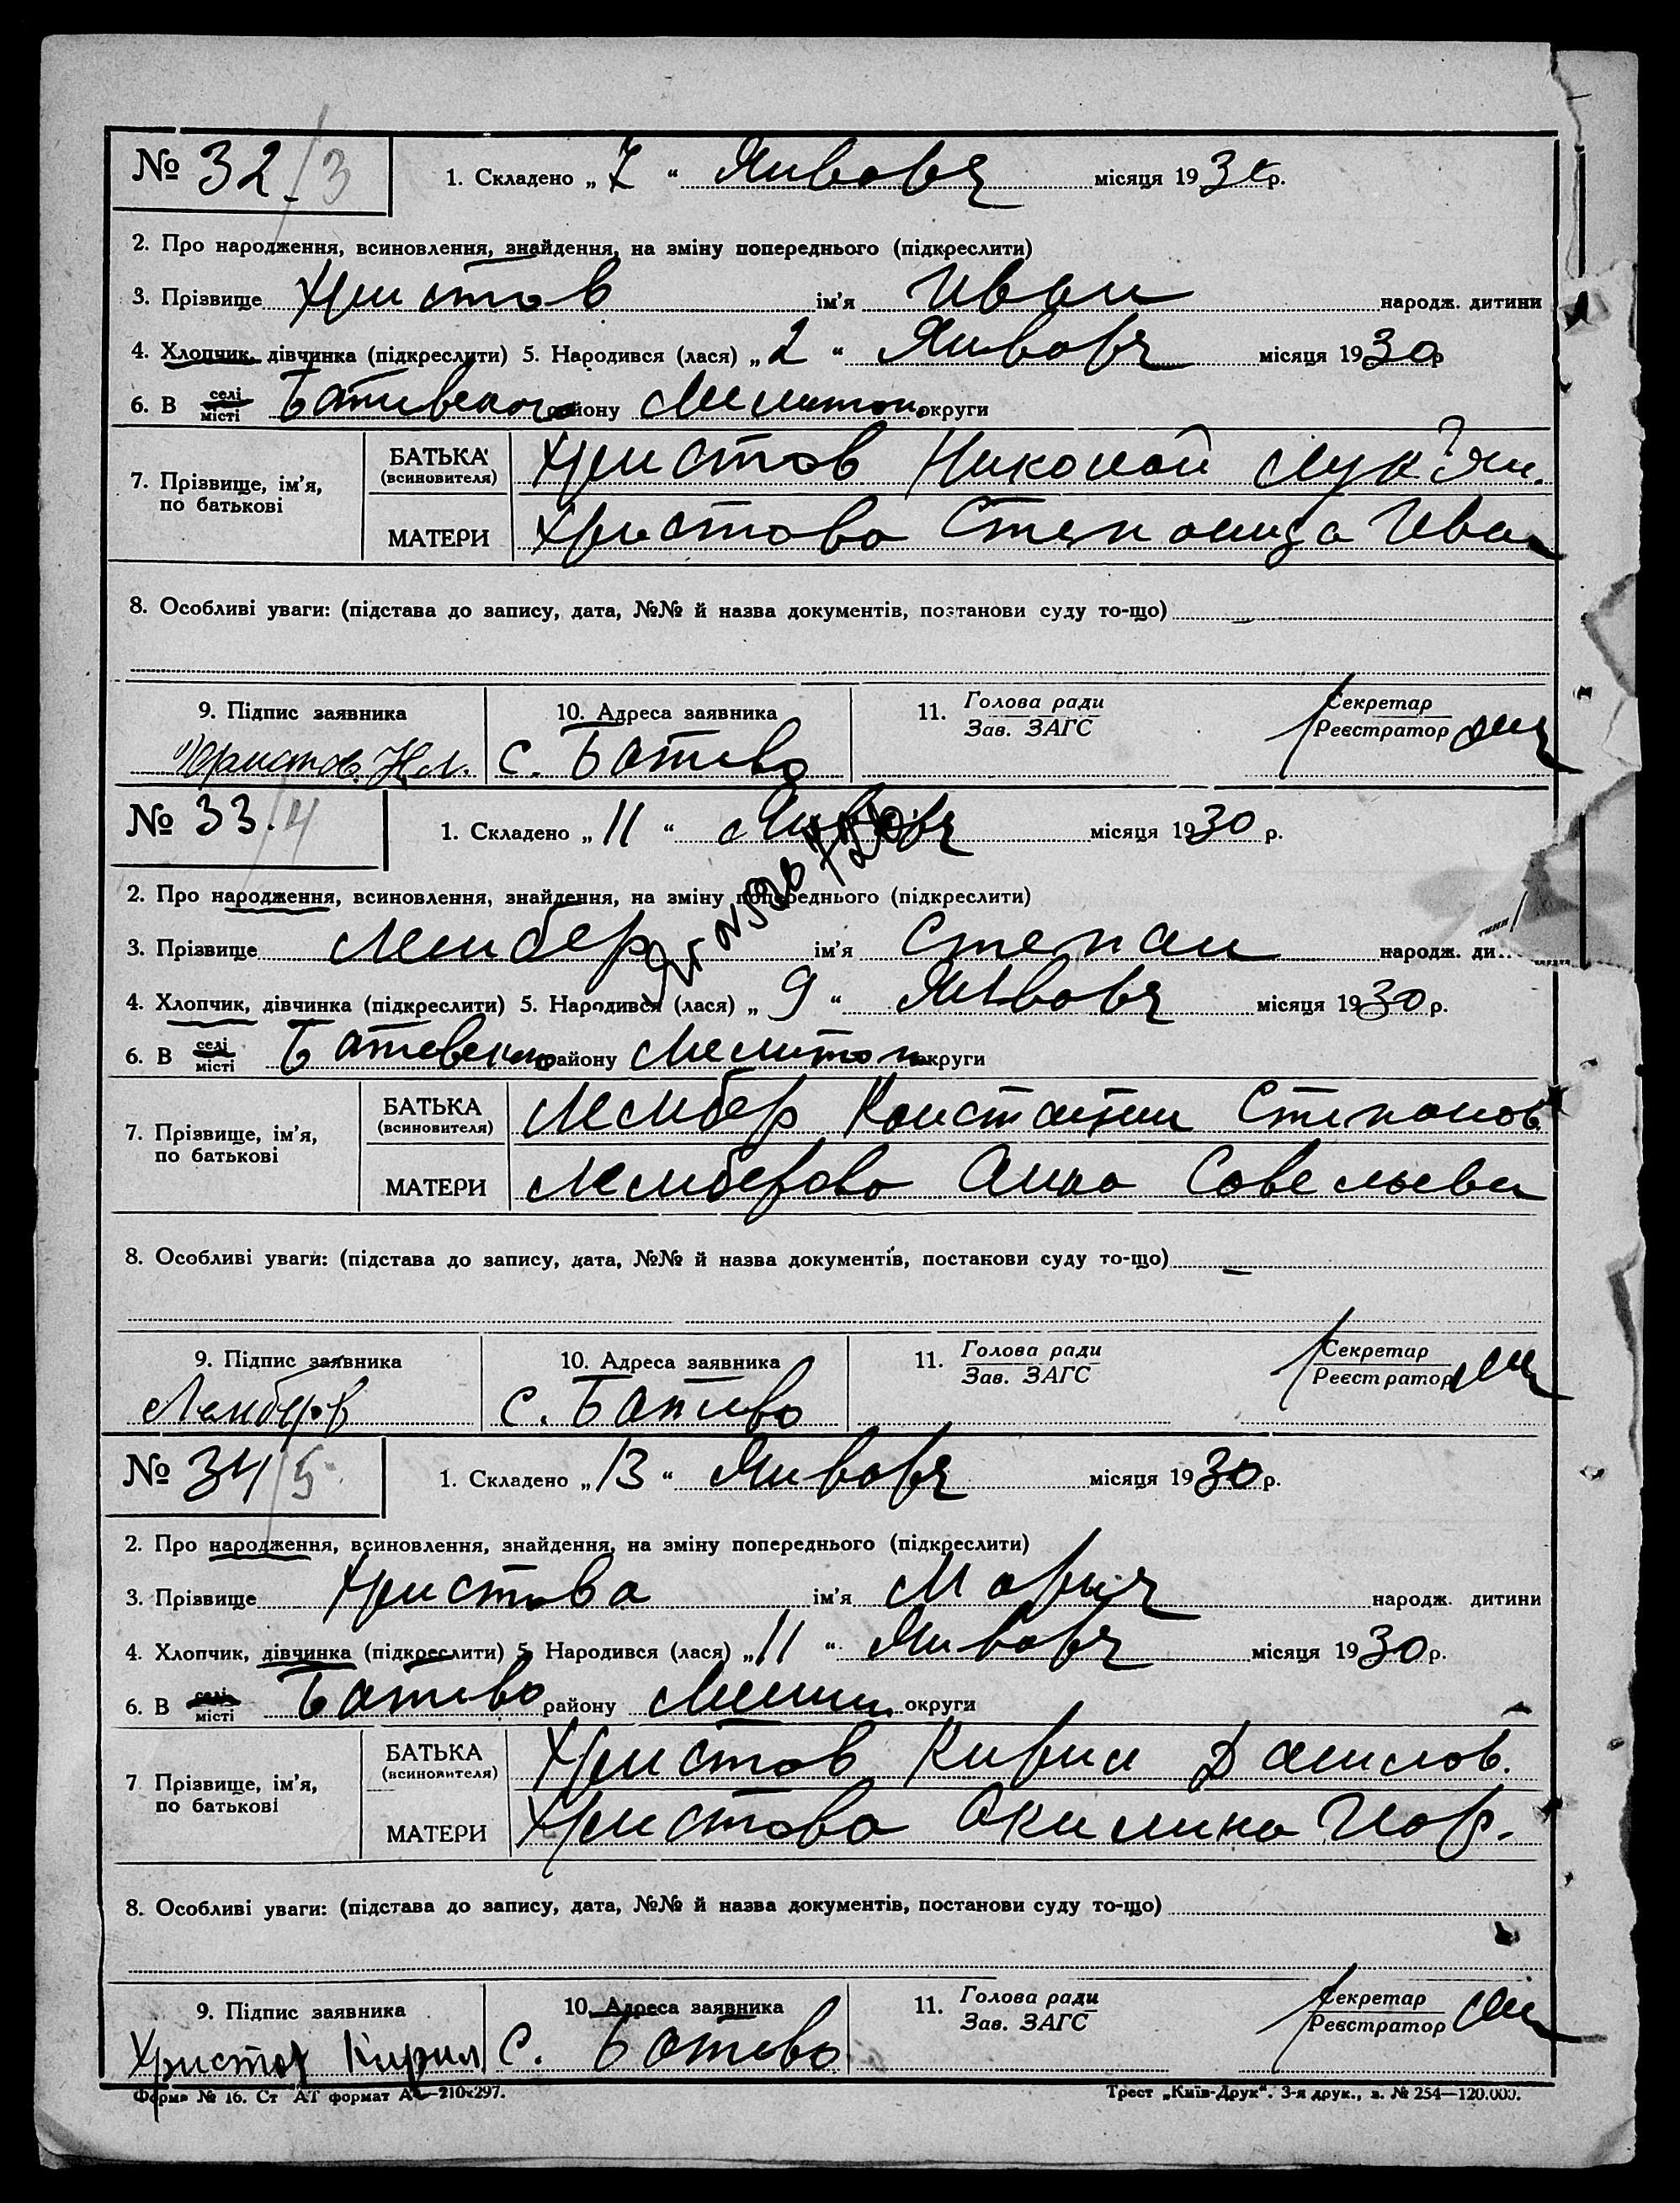 № 32/3 1. Складено „ 7 “ Январь місяця 1930 р.
2. Про народження, всиновлення, знайдення, на зміну попереднього (підкреслити)
3. Прізвище Христов ім'я Иван народж. дитини
4. Хлопчик, дівчинка (підкреслити) 5. Народився (лася) „ 2 “ Январь місяця 1930 р
6. В селі місті Батевского району Мелитоп. округи
7. Прізвище, ім'я, по батькові БАТЬКА (всиновителя) Христов Николай Лук'ян.
МАТЕРИ Христова Степанида Иван
8. Особливі уваги: (підстава до запису, дата, №№ й назва документів, постанови суду то-що) –
9. Підпис заявника 10. Адреса заявника 11. Голова ради Зав. ЗАГС Секретар Реєстратор
Христов. Н.Л. С. Батево
№ 33./4 1. Складено „ 11 “ Январь місяця 1930 р.
2. Про народження, всиновлення, знайдення, на зміну попереднього (підкреслити)
3. Прізвище Лембер ім'я Степан народж. ди
4. Хлопчик, дівчинка (підкреслити) 5. Народився (лася) „ 9 “ Январь місяця 1930 р.
6. В селі місті Батевского району Мелитоп округи
7. Прізвище, ім'я, по батькові БАТЬКА (всиновителя) Лембер Константин Степанов.
МАТЕРИ Лемберова Анна Савельевн
8. Особливі уваги: (підстава до запису, дата, №№ й назва документів, постакови суду то-що) –
9. Підпис заявника 10. Адреса заявника 11. Голова ради Зав. ЗАГС Секретар Реєстратор
Лемберов С. Батево
№ 34/5 1. Складено „ 13 “ Январь місяця 1930 р.
2. Про народження, всиновлення, знайдення, на зміну попереднього (підкреслити)
3. Прізвище Христова ім'я Мария народж. дитини
4. Хлопчик, дівчинка (підкреслити) 5. Народився (лася) „ 11 “ Январь місяця 1930 р.
6. В селі місті Батево району округи
7 Прізвище, ім'я, по батькові БАТЬКА (всиновителя) Христов Кирил Данилов.
МАТЕРИ Христова Акилина Иор.
8. Особливі уваги: (підстава до запису, дата, №№ й назва документів, постанови суду то-що)
9. Підпис заявника 10. Адреса заявника 11. Голова ради Зав. ЗАГС Секретар Реєстратор
Христов Кирил С. Батево
Форма № 16. Ст АТ формат А4—210х297. Трест „Київ-Друк“. 3-я друк., з. № 254—120.000.